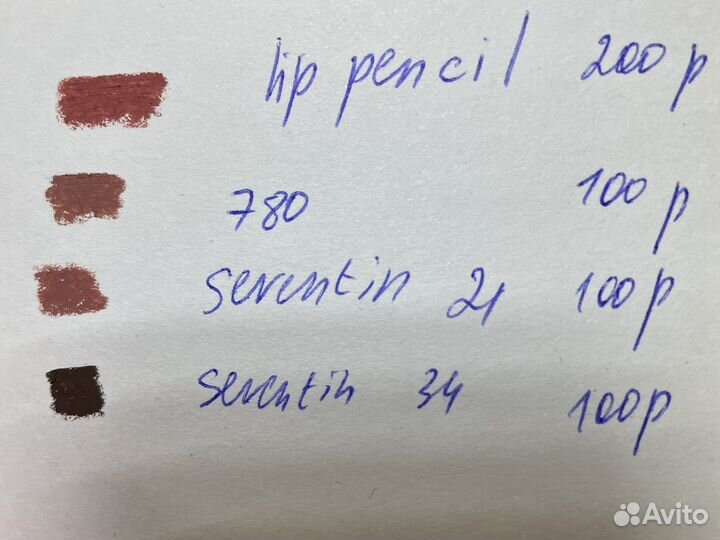 lip pencil 200 р
780 100 р
seventin 21 100 р
seventin 34 100р
Avito